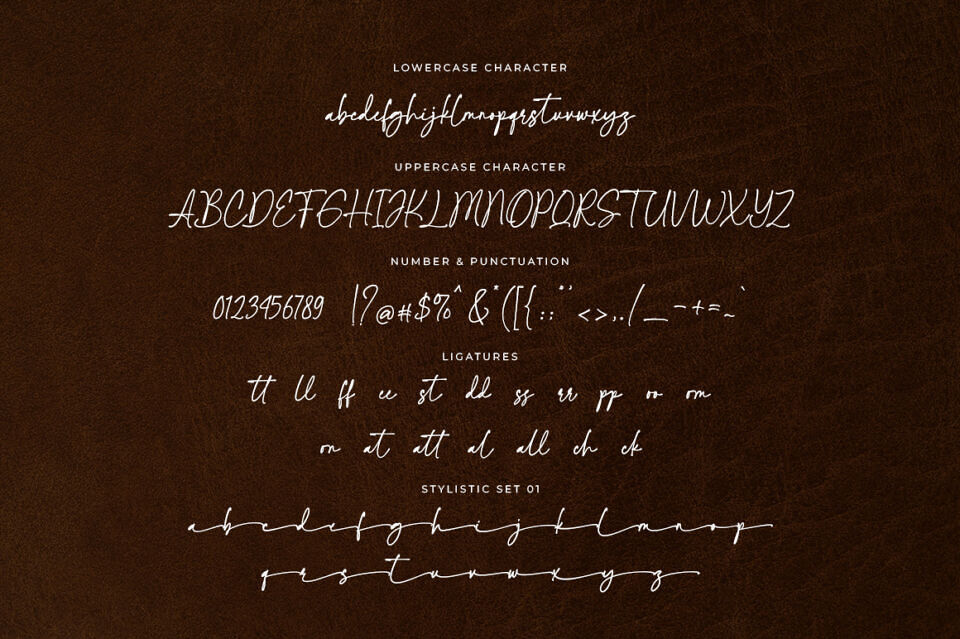 LOWERCASE CHARACTER
abcdefghijklmnopqrstuvwxyz
UPPERCASE CHARACTER
ABCDEFGHIJKLMNOPQRSTUVWXYZ
NUMBER & PUNCTUATION
0123456789 |?@#$%^&*([{:;"'<>,./_-+=~`
LIGATURES
tt ll ff ee st dd ss rr pp oo om
on at att al all ch ck
STYLISTIC SET 01
abcdefghijklmnop
qrstuvwxyz